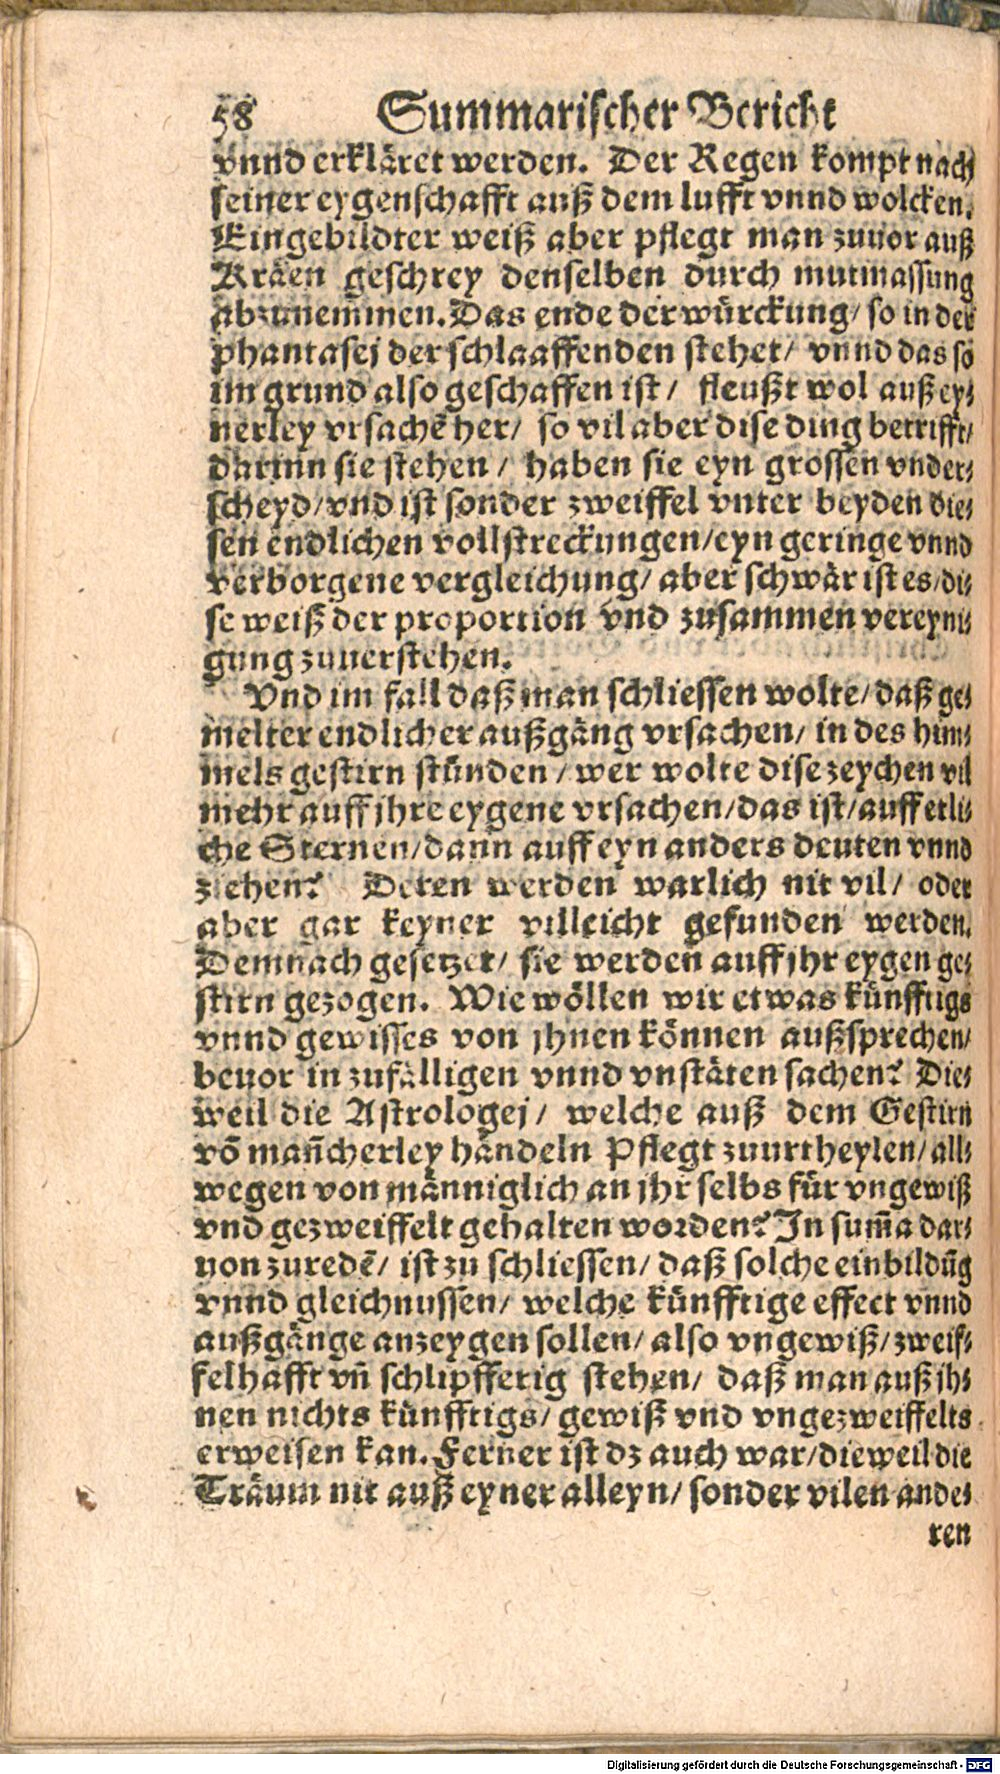 58 Summarischer Bericht
vnnd erkläret werden. Der Regen kompt nach
seiner eygenschafft auß dem lufft vnnd wolcken.
Eingebildter weiß aber pflegt man zuuor auß
Kräen geschrey denselben durch mutmassung
abzunem̃en. Das ende der würckung/ so in der
phantasej der schlaaffenden stehet/ vnnd das so
im grund also geschaffen ist/ fleußt wol auß ey⸗
nerley vrsachẽ her/ so vil aber dise ding betrifft/
darinn sie stehen/ haben sie eyn grossen vnder⸗
scheyd/ vnd ist sonder zweiffel vnter beyden die⸗
sen endlichen vollstreckungen/ eyn geringe vnnd
verborgene vergleichung/ aber schwär ist es/ di⸗
se weiß der proportion vnd zusammen vereyni⸗
gung zuuerstehen.
Vnd im fall daß man schliessen wolte/ daß ge⸗
melter endlicher außgäng vrsachen/ in des him⸗
mels gestirn stünden/ wer wolte dise zeychen vil
mehr auff jhre eygene vrsachen/ das ist/ auff etli⸗
che Sternen/ dann auff eyn anders deuten vnnd
ziehen? Deren werden warlich nit vil/ oder
aber gar keyner villeicht gefunden werden.
Demnach gesetzet/ sie werden auff jhr eygen ge⸗
stirn gezogen. Wie wöllen wir etwas künfftigs
vnnd gewisses von jhnen können außsprechen/
beuor in zufälligen vnnd vnstäten sachen? Die⸗
weil die Astrologej/ welche auß dem Gestirn
võ mañcherley händeln Pflegt zuurtheylen/ all⸗
wegen von männiglich an jhr selbs für vngewiß
vnd gezweiffelt gehalten worden? In sum̃a dar⸗
uon zuredẽ/ ist zu schliessen/ daß solche einbildũg
vnnd gleichnussen/ welche künfftige effect vnnd
außgänge anzeygen sollen/ also vngewiß/ zweif⸗
felhafft vñ schlipfferig stehen/ daß man auß jh⸗
nen nichts künfftigs/ gewiß vnd vngezweiffelts
erweisen kan. Ferner ist dz auch war/ dieweil die
Träum nit auß eyner alleyn/ sonder vilen ande⸗
ren
Digitalisierung gefördert durch die Deutsche Forschungsgemeinschaft - DFG